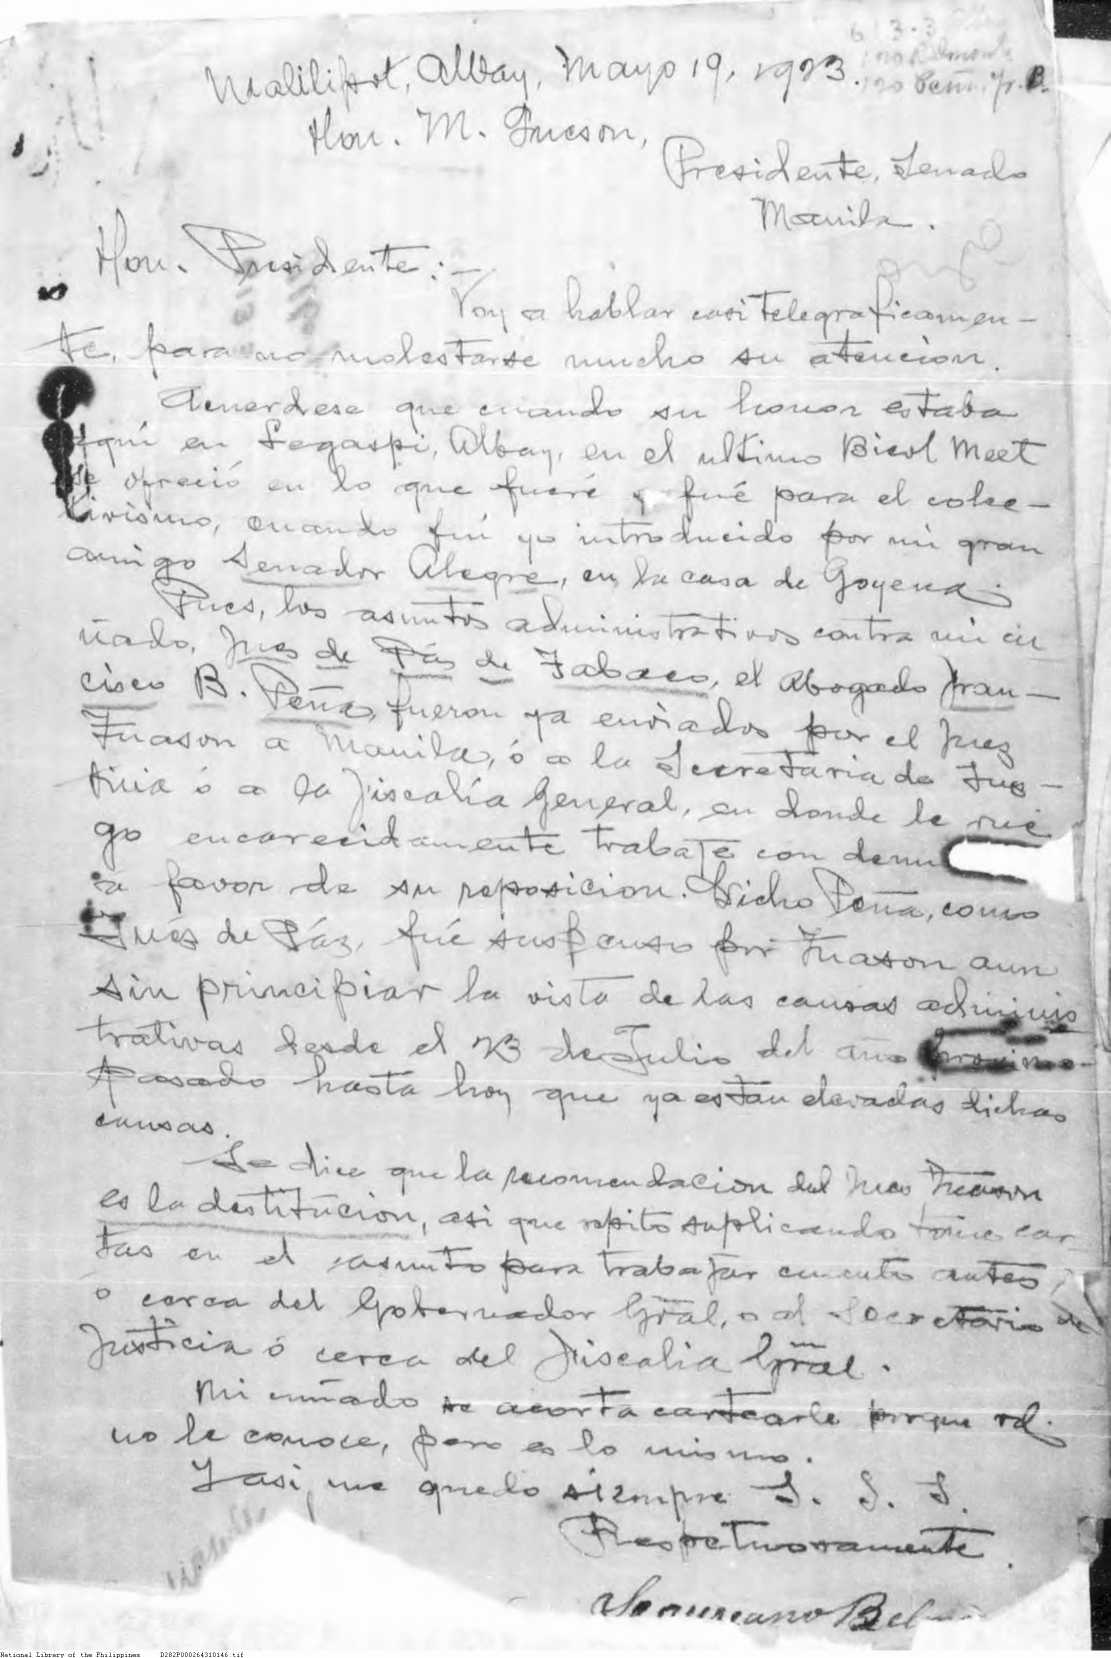 6 13-3
Malilipot, Albay, Mayo 19, 1923.
Hon. M. Quezon,
Presidente, Senado
Manila.
Hon. Presidente:—
Voy a hablar casi telegraficamen-
te, para no molestarse mucho su atencion.
Acuerdese que cuando su honor estaba
aqui en Legaspi, Albay, en el ultimo Bicol Meet
se ofreció en lo que fueré y fué para el colec-
tivismo, cuando fuí yo introducido por mi gran
amigo Senador Alegre, en la casa de Goyena.
Pues, los asuntos administrativos contra mi cu
ñado, Jues de Pás de Tabaco, el Abogado Fran-
cisco B. Peña, fueron ya enviados por el Juez
Tuason a Manila, ó a la Secretaria de Jus-
ticia ó a la Fiscalía General, en donde le rue
go encarecidamente trabaje con denu
a favor de su reposicion. Dicho Peña, como
Juéz de Páz, fué suspenso por Tuason aun
sin principiar la vista de las causas adminis
trativas desde el 23 de Julio del año proximo-
pasado hasta hoy que ya están elevadas dichas
causas.
Se dice que la recomendacion del Jues Tuason
es la destitución, asi que repito suplicando tome car
tas en el asunto para trabajar cuento antes,
ó cerca del Gobernador Gral, o al Secretario de
Justicia ó cerca del Fiscalia Gral.
Mi cuñado se acorta cartearle porque vd.
no le conoce, pero es lo mismo.
Y asi, me quedo siempre S. S. S.
Respetuosamente.